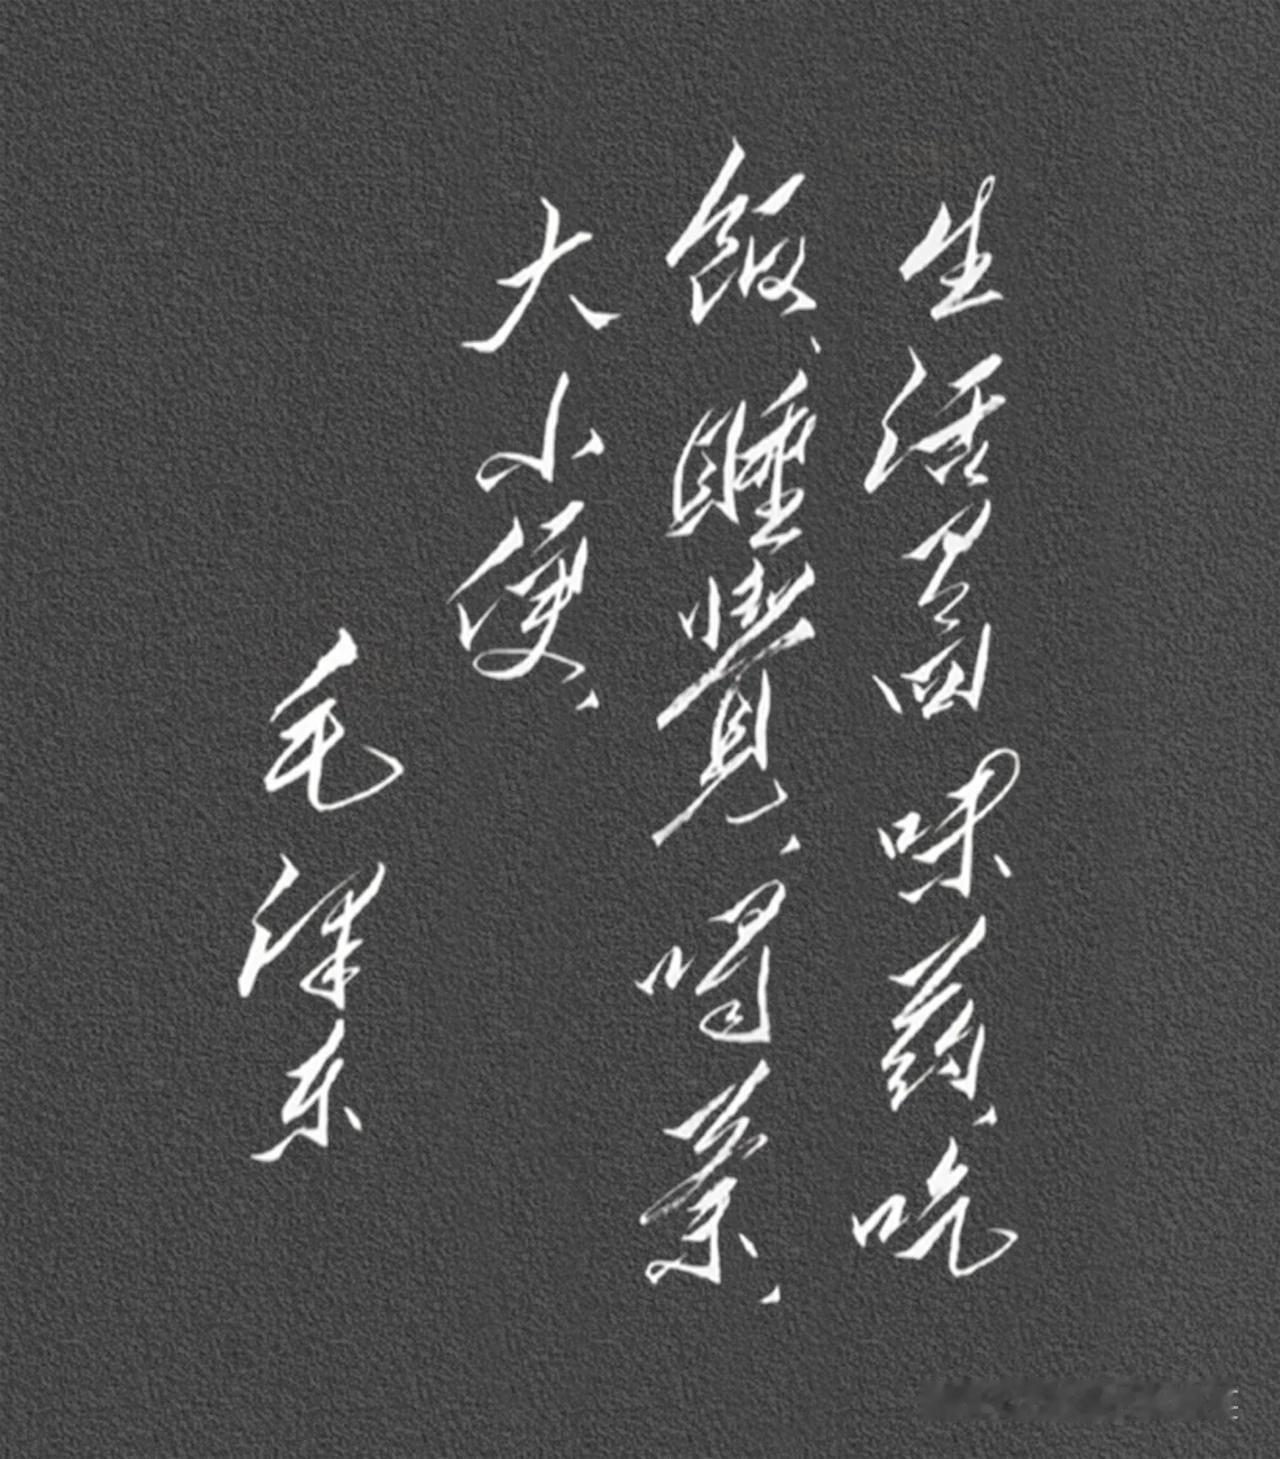 生活是四味药、吃
飯、睡覺、喝茶、
大小便、
毛泽东